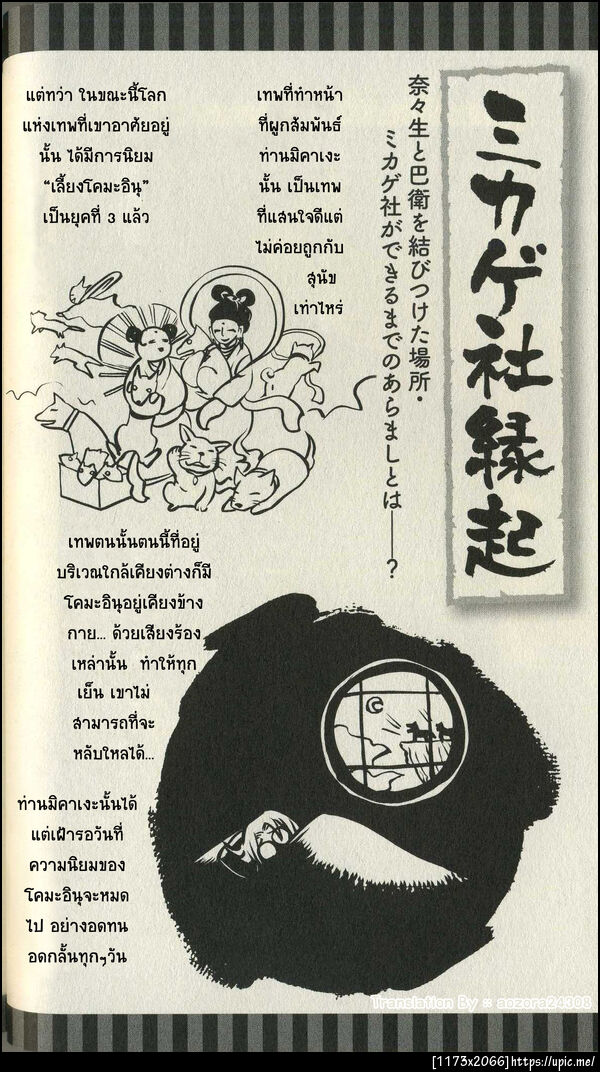 ミカゲ社縁起
奈々生と巴衛を結びつけた場所・
ミカゲ社ができるまでのあらましとは——?
เทพที่ทำหน้า
ที่ผูกสัมพันธ์
ท่านมิคาเงะ
นั้น เป็นเทพ
ที่แสนใจดีแต่
ไม่ค่อยถูกกับ
สุนัข
เท่าไหร่
แต่ทว่า ในขณะนี้โลก
แห่งเทพที่เขาอาศัยอยู่
นั้น ได้มีการนิยม
“เลี้ยงโคมะอินุ”
เป็นยุคที่ 3 แล้ว
เทพตนนั้นตนนี้ที่อยู่
บริเวณใกล้เคียงต่างก็มี
โคมะอินุอยู่เคียงข้าง
กาย... ด้วยเสียงร้อง
เหล่านั้น ทำให้ทุก
เย็น เขาไม่
สามารถที่จะ
หลับใหลได้...
ท่านมิคาเงะนั้นได้
แต่เฝ้ารอวันที่
ความนิยมของ
โคมะอินุจะหมด
ไป อย่างอดทน
อดกลั้นทุกๆวัน
Translation By :: aozora24308
[1173x2066]https://upic.me/